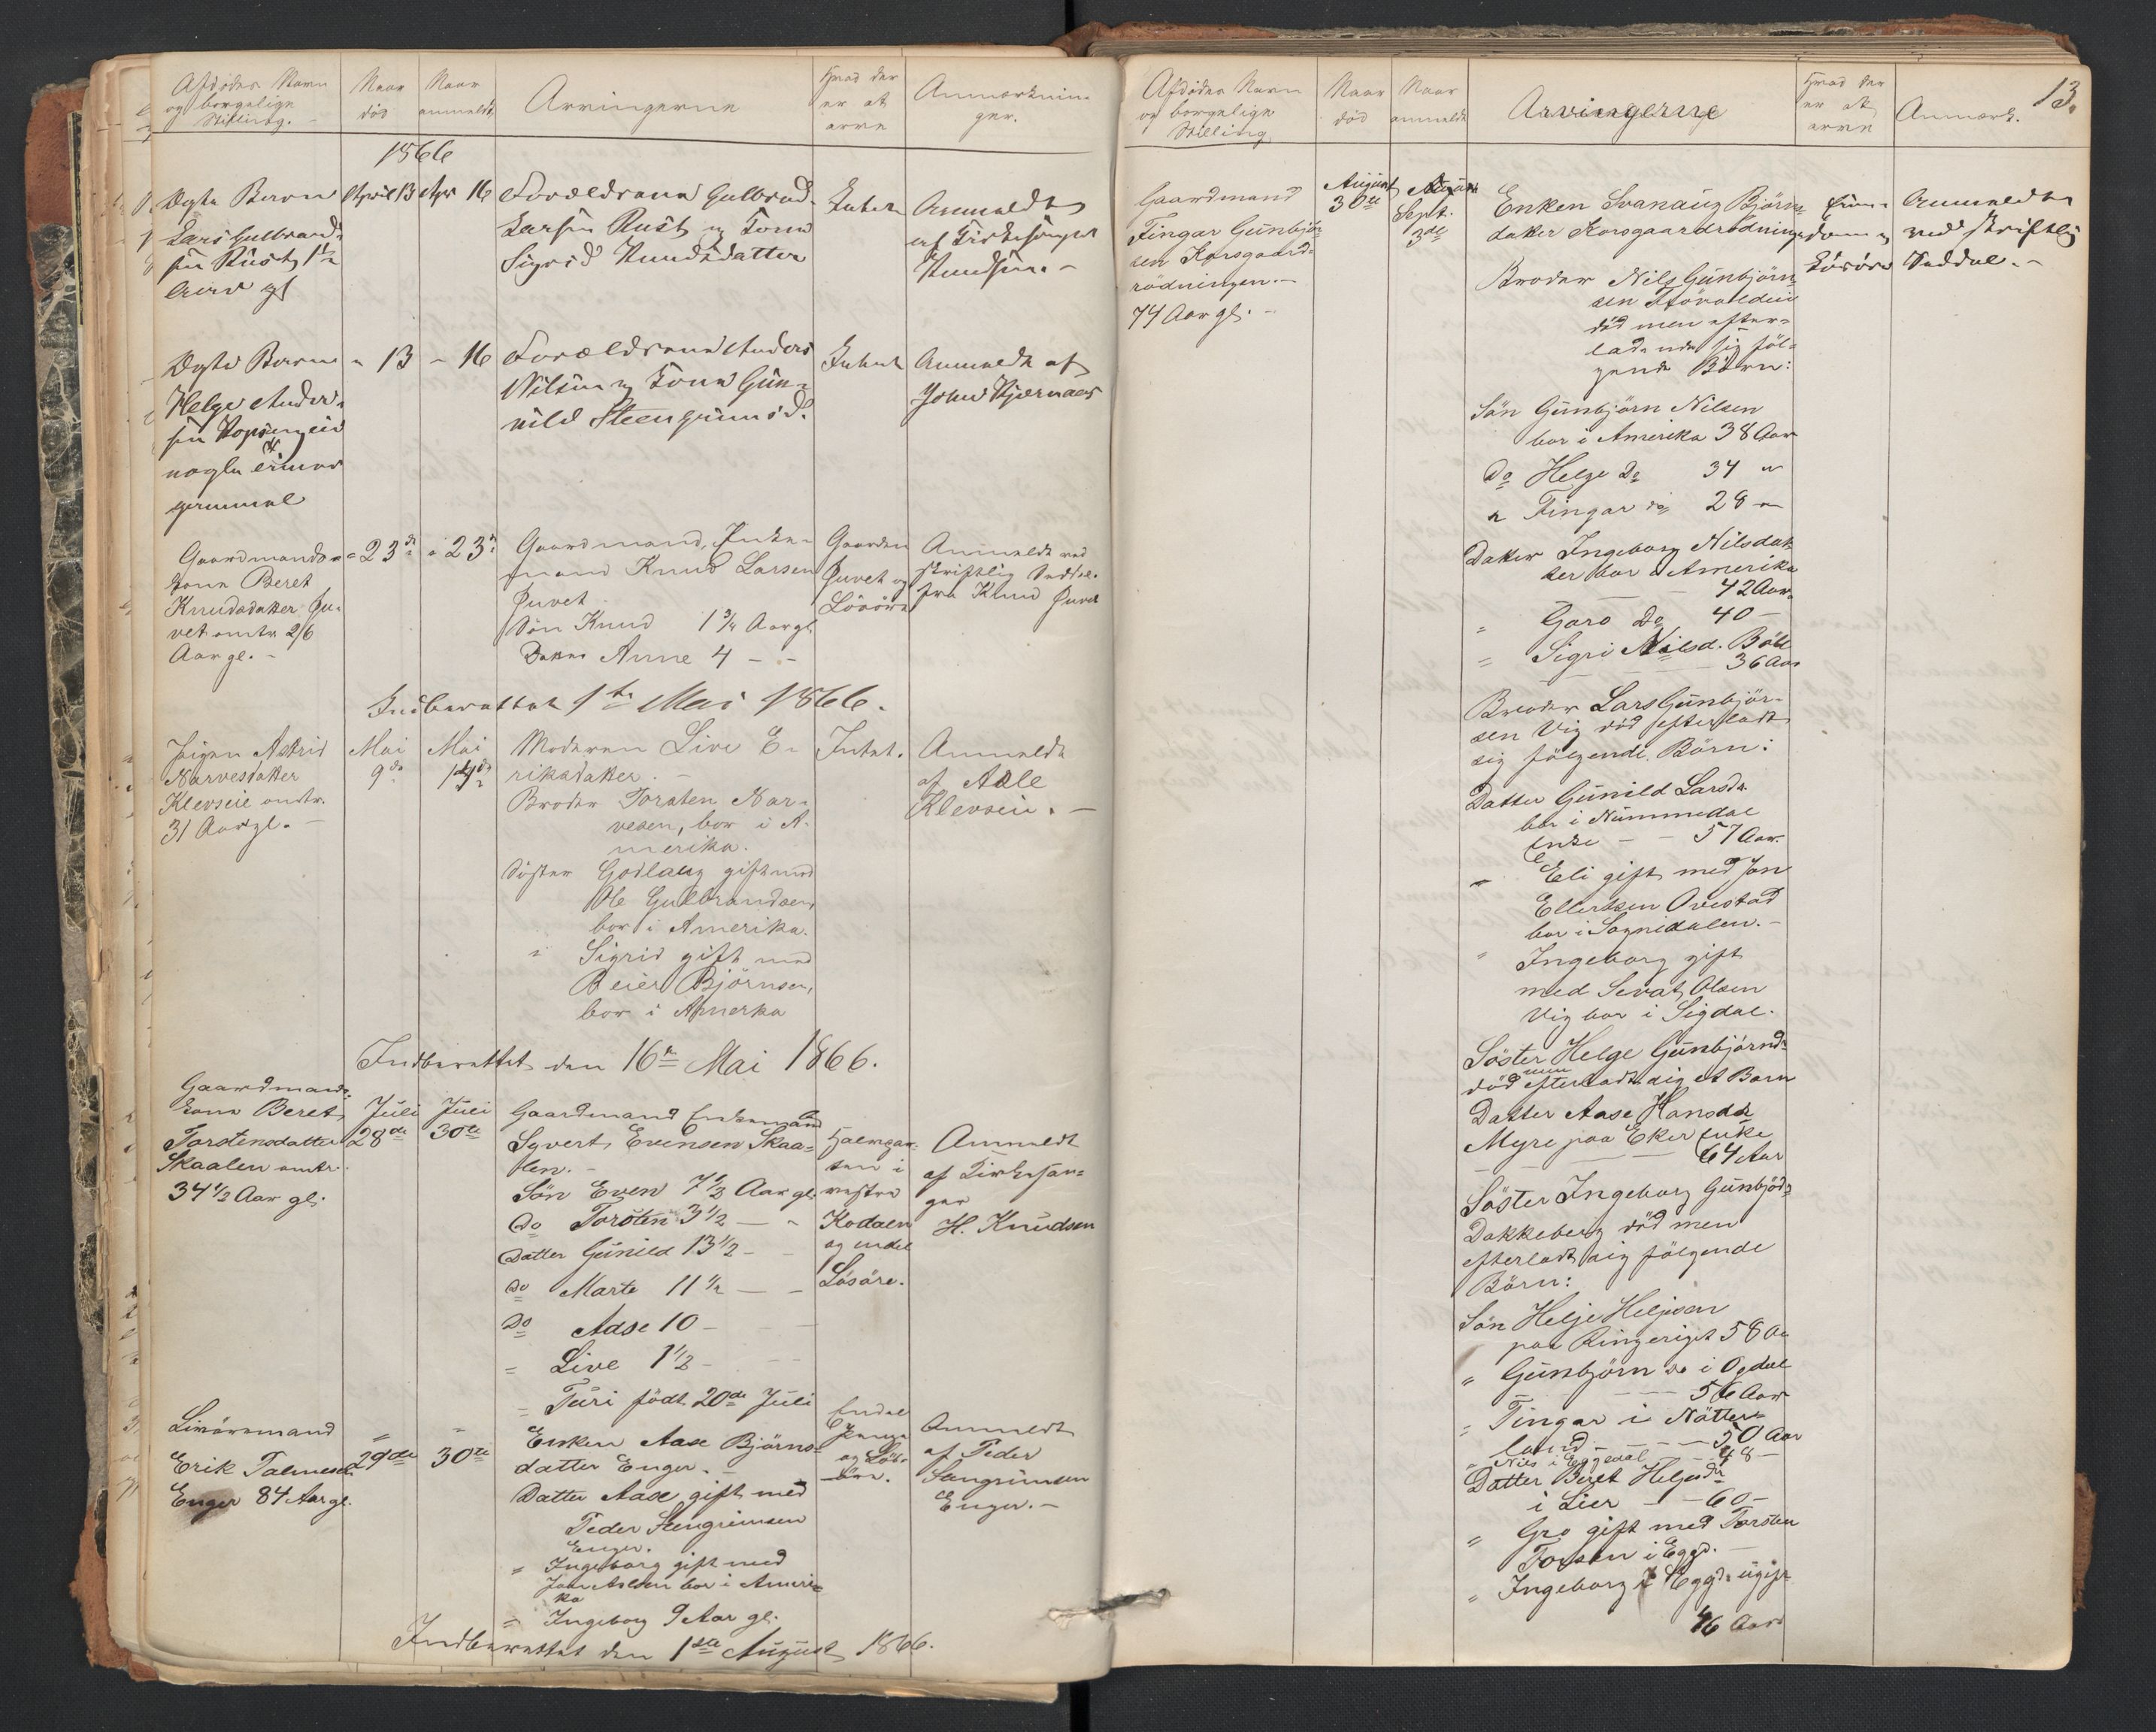 Afdödes Navn
og borgelige
Stilling.
Naar
död
Naar
anmeldt
Arvingerne
Hvad der
er at
arve
Anmærknin-
ger.
1866
Ægte Barn
Lars Gulbrand-
sen Rust 1½
April 13
Apr 16
Forældrene Gulbrand
Larsen Rust og Kone
Sigrid Knudsdatter
Intet
Anmeldt
af Kirkesanger
Knudsen. -
Ægte Barn
Helge Anders-
sen
nogle
gammel
" 13
- 16
Forældrene Anders
Nilsen og Kone Gun-
nild Steengrimsd.
Intet
Anmeldt af
John
Gaardmands-
kone Beret
Knudsdatter Ju-
vet omtr. 26
Aar gl. -
- 23de
" 23de
Gaardmand, Enke-
mand Knud Larsen
Juvet
Sön Knud 1¾ Aar gl.
Datter Anne 4 - -
Gaarden
Juvet og
Lösöre
Anmeldt ved
skriftlig Seddel
fra Knud Juvet
Indberettet 1te Mai 1866.
Pigen Astrid
Narvesdatter
Klevseie omtr.
31 Aar gl. -
Mai
9de
Mai
Moderen Live E-
riksdatter. -
Broder Torsten Nar-
vesen, bor i A-
merika.
Söster Godlaug gift med
Ole Gulbrandsen,
bor i Amerika.
" Sigrid gift med
Beier Björnsen,
bor i Amerka
Intet.
Anmeldt
af
Klevseie. -
Indberettet den 16de Mai 1866.
Gaardmands-
kone Beret
Torstensdatter
Skaalen omtr.
34½ Aar gl.
Juli
28de
Juli
30te
Gaardmand Enkemand
Syvert Evensen Skaa-
len. -
Sön Even 7½ Aar gl.
do Torsten 3½ - -
Datter Gunild 13½ - -
do Marte 11½ - -
do Adse 10 -
= Live 1½ -
= Turi födt 20de Juli
i
vestre
og endel
Lösöre.
Anmeldt
af Kirkesan-
ger
H. Knudsen
Livöresmand
Erik
Enger 84 Aar gl.
"
29de
"
30te
Enken Aase Björns-
datter Enger. -
Datter Aase gift med
Peder Stengrimsen
Enger.
" Ingeborg gift med
bor i Ameri-
ka
= Ingeborg 9 Aar gl.
Endel
Penge
og Lös-
öre.
Anmeldt
af Peder
Enger. -
Indberettet den 1ste August 1866.
13.
Afdödes Navn
og borgelige
Stilling
Naar
död
Naar
anmeldt
Arvingerne
Hvad der
er at
arve
Anmærk.
Gaardmand
Fingar Gunbjör-
sen Korsgaard-
rödningen. -
74 Aar gl. -
August
30te
Sept.
3de
Enken Svanaug Björns-
datter Korsgaardrödningen
Broder Nils Gunbjörn-
sen
död men efter-
ladende sig föl-
gende Börn:
Sön Gunbjörn Nilsen
bor i Amerika 38 Aar
Do Helge Do 34 "
" Fingar do 28 -
Datter Ingeborg Nilsdat-
ter bor i Amerika
42 Aar
" Goro Do 40 -
= Sigri Nilsd.
36 Aar
Broder Lars Gunbjör-
sen Vig död efterladt
sig fölgende Börn:
Datter Gunild Larsda.
bor i Nummedal
Enke - - 57 Aar.
" Eli gift med Jon
Ellertsen
bor i Sognidalen. -
" Ingeborg gift
med Sevat Olsen
Vig bor i Sigdal.
Söster Helge Gunbjörnd-
död men efterladt sig et Barn
Datter Aase Hansdr
Myre paa Eker Enke
64 Aar
Söster Ingeborg Gunbjöd-
Dokkeberg död men
efterladt sig fölgende
Börn:
Sön Helje Heljesen
paa Ringeriget 58 Aa
" Gunbjörn do i
56 Aar
= Tingar i Nötte-
land - - - 50 Aar
" Nils i Eggedal 48 -
Datter Beret Heljesdr
i Lier - - 60 -
" Gro gift med Torsten
i Eggd.
" Ingeborg i Eggd. ugift
46 Aar
Eien-
dom og
Lösöre
Anmeldt
ved skriftlig
Seddel. -